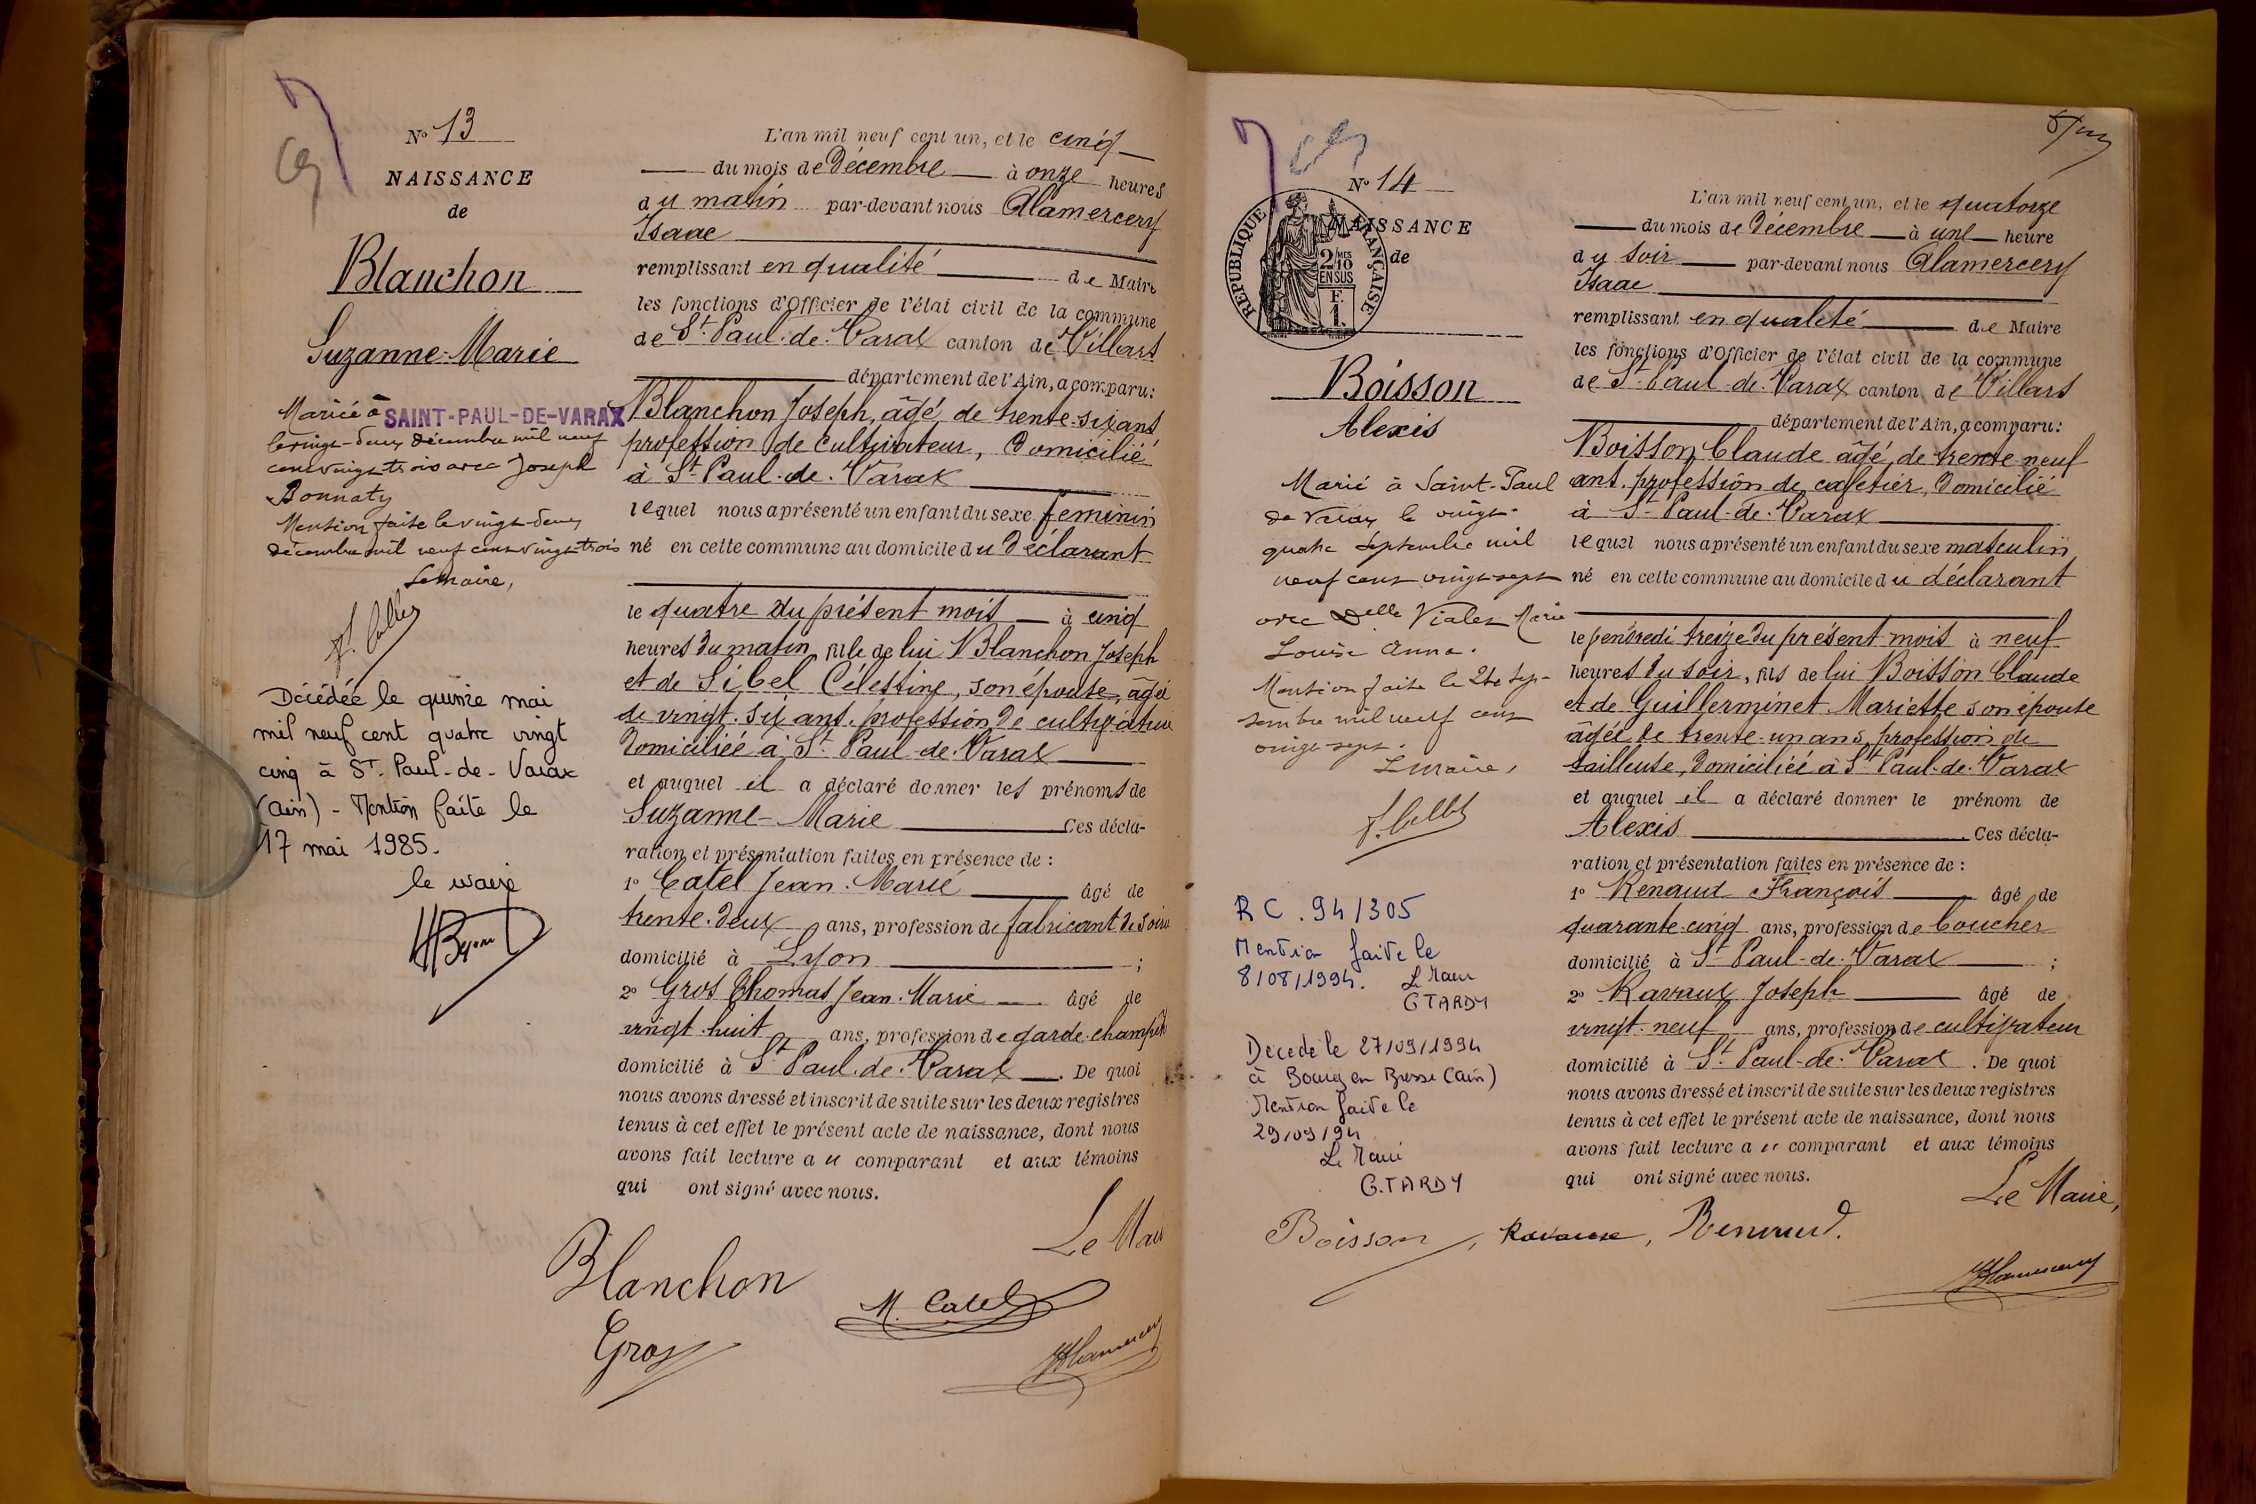 Nº 13
NAISSANCE
de
Blanchon
Suzanne-Marie
Mariée à SAINT-PAUL-DE-VARAX
le vingt-deux décembre mil neuf
cent vingt trois avec Joseph
Bonnaty
Mention faite le vingt-deux
décembre mil neuf cent vingt-trois
Le Maire,
Décédée le quinze mai
mil neuf cent quatre vingt
cinq à St. Paul-de-Varax
(Ain) - Mention faite le
17 mai 1985.
le maire
L'an mil neuf cent un, et le cinq
du mois de Décembre à onze heures
du matin par-devant nous Alamercery
Isaac
remplissant en qualité de Maire
les fonctions d'Officier de l'état civil de la commune
de St. Paul-de-Varax canton de Villars
département de l'Ain, a comparu:
Blanchon Joseph, âgé de trente-six ans
profession de cultivateur, domicilié
à St. Paul-de-Varax
lequel nous a présenté un enfant du sexe féminin
né en cette commune au domicile du déclarant
le quatre du présent mois à cinq
heures du matin fille de lui Blanchon Joseph
et de Sibel Célestine, son épouse, âgée
de vingt-six ans, profession de cultivateur
domiciliée à St. Paul-de-Varax
et auquel il a déclaré donner les prénoms de
Suzanne-Marie Ces décla-
ration et présentation faites en présence de :
1º Catel Jean-Marie âgé de
trente-deux ans, profession de fabricant de soire
domicilié à Lyon ;
2º Gros Thomas Jean-Marie âgé de
vingt-huit ans, profession de garde-champêt
domicilié à St. Paul-de-Varax. De quoi
nous avons dressé et inscrit de suite sur les deux registres
tenus à cet effet le présent acte de naissance, dont nous
avons fait lecture au comparant et aux témoins
qui ont signé avec nous.
Le Mai
Blanchon
M. Catel
Gros
Alamercery
Nº 14
NAISSANCE
de
REPUBLIQUE FRANÇAISE
2 MES
10
EN SUS
F.
1.
Boisson
Alexis
Marié à Saint-Paul
de Varax le vingt-
quatre septembre mil
neuf cent vingt-sept
avec Delle Vialet Marie
Louise Anna.
Mention faite le 24 Sep-
tembre mil neuf cent
vingt-sept.
Le Maire,
RC. 94/305
Mention faite le
8/08/1994. Le Maire
G TARDY
Décédé le 27/09/1994
à Bourg en Bresse (Ain)
Mention faite le
29/09/94
Le Maire
G. TARDY
L'an mil neuf cent un, et le quatorze
du mois de Décembre à une heure
du soir par-devant nous Alamercery
Isaac
remplissant en qualité de Maire
les fonctions d'Officier de l'état civil de la commune
de St. Paul-de-Varax canton de Villars
département de l'Ain, a comparu:
Boisson Claude âgé de trente-neuf
ans, profession de cafetier, domicilié
à St. Paul-de-Varax
lequel nous a présenté un enfant du sexe masculin
né en cette commune au domicile du déclarant
le vendredi treize du présent mois à neuf
heures du soir, fils de lui Boisson Claude
et de Guillerminet Mariette son épouse
âgée de trente-un ans, profession de
tailleuse, domiciliée à St. Paul-de-Varax
et auquel il a déclaré donner le prénom de
Alexis Ces décla-
ration et présentation faites en présence de :
1º Renaud François âgé de
quarante-cinq ans, profession de boucher
domicilié à St. Paul-de-Varax ;
2º Ravaux Joseph âgé de
vingt-neuf ans, profession de cultivateur
domicilié à St. Paul-de-Varax. De quoi
nous avons dressé et inscrit de suite sur les deux registres
tenus à cet effet le présent acte de naissance, dont nous
avons fait lecture au comparant et aux témoins
qui ont signé avec nous.
Le Maire,
Boisson, Ravaux, Renaud.
Alamercery